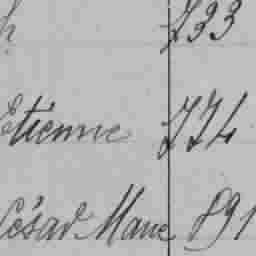 h 733
Etienne 774
César Marie 891